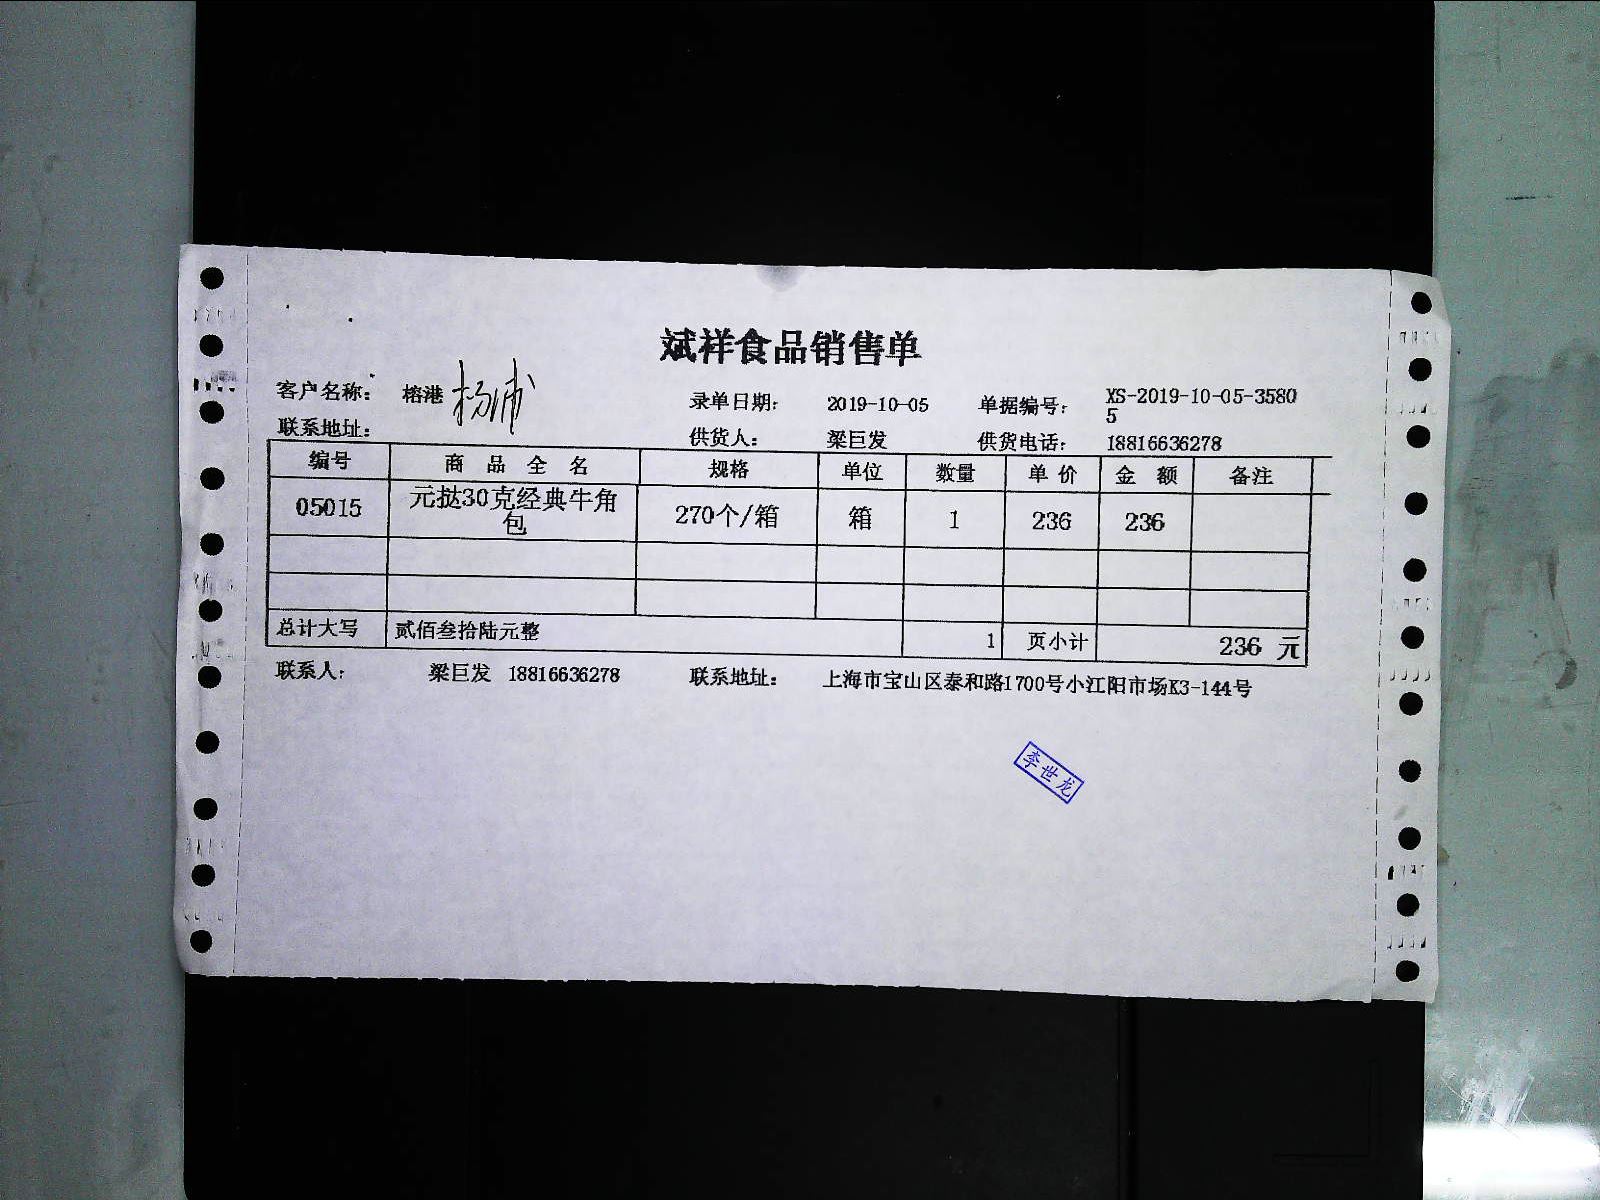 斌祥食品销售单
客户名称： 榕港 杨浦 录单日期： 2019-10-05 单据编号： XS-2019-10-05-3580
5
联系地址： 供货人： 梁巨发 供货电话： 18816636278
编号 商 品 全 名 规格 单位 数量 单 价 金 额 备注
05015 元挞30克经典牛角 270个/箱 箱 1 236 236
包
总计大写 贰佰叁拾陆元整 1 页小计 236 元
联系人： 梁巨发 18816636278 联系地址： 上海市宝山区泰和路1700号小江阳市场K3-144号
李世龙